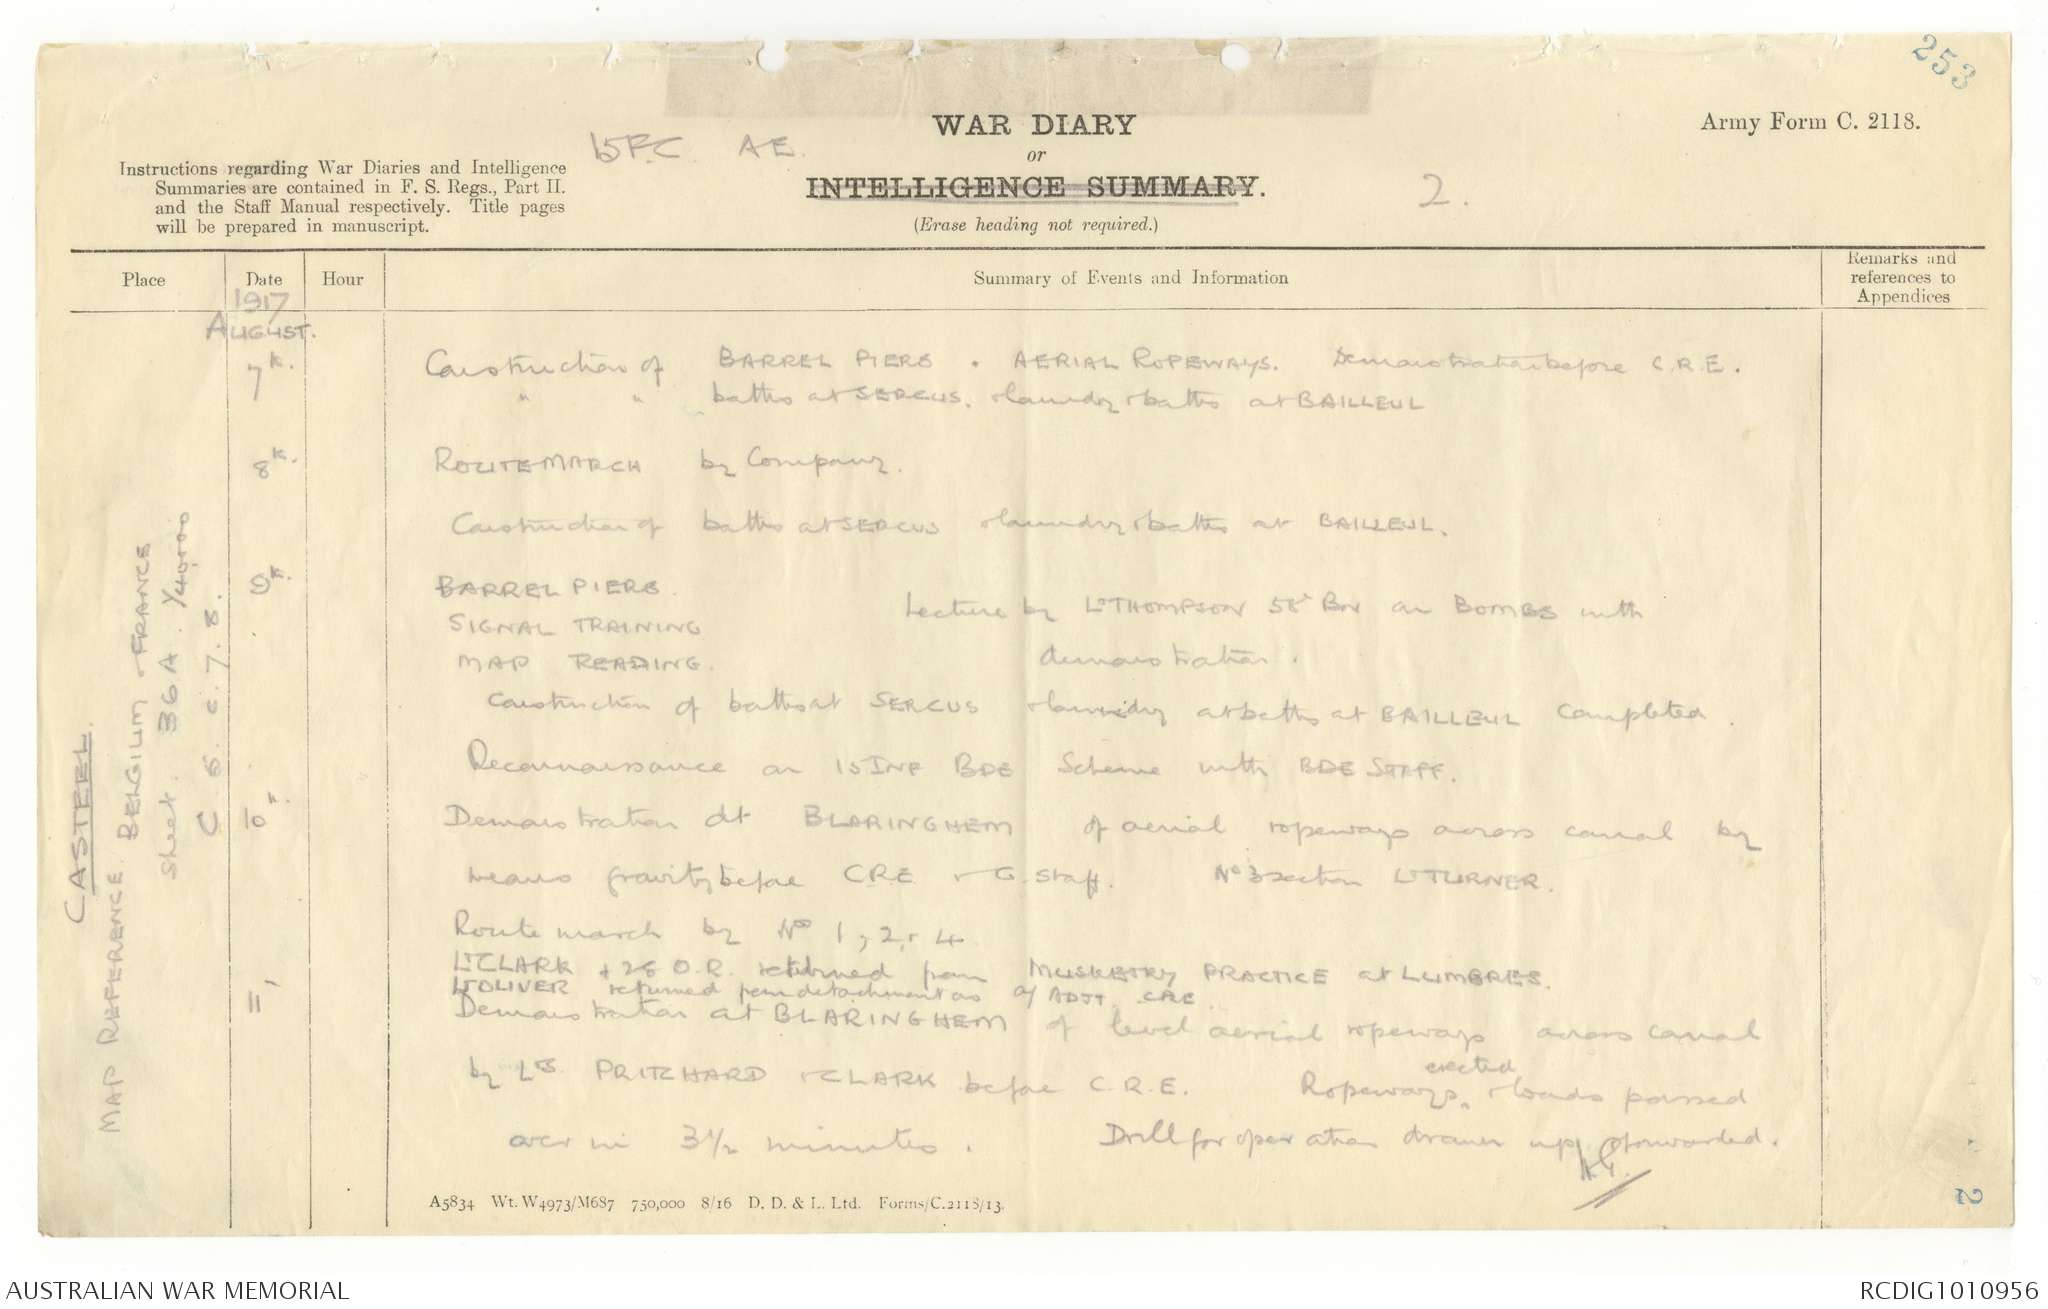 253
WAR DIARY
or
INTELLIGENCE SUMMARY.
(Erase heading not required.)
Army Form C. 2118.
15 F.C. A E.
2.
Instructions regarding War Diaries and Intelligence
Summaries are contained in F. S. Regs., Part II.
and the Staff Manual respectively. Title pages
will be prepared in manuscript.
Place
Date
Hour
Summary of Events and Information
Remarks and
references to
Appendices
1917
AUGUST.
CASTEEL.
MAP REFERENCE BELGIUM & FRANCE
Sheet 36 A 1/40,000
C 5. c. 7. 8.
7th. Construction of BARREL PIERS. AERIAL ROPEWAYS. Demonstration before C.R.E.
" " baths at SERCUS. & laundry & baths at BAILLEUL
8th. ROUTE MARCH by Company.
Construction of baths at SERCUS & laundry & baths at BAILLEUL.
9th. BARREL PIERS.
Lecture by Lt THOMPSON 58th Bn on BOMBS with
SIGNAL TRAINING
MAP READING.
demonstration.
Construction of baths at SERCUS & laundry at baths at BAILLEUL completed.
Reconnaissance on 15 INF BDE Scheme with BDE STAFF.
10th. Demonstration at BLARINGHEM of aerial ropeways across canal by
means gravity before C.R.E. & G. Staff. No 3 section Lt TURNER.
Route march by Nos 1, 2, & 4
Lt CLARK & 28 O.R. returned from MUSKETRY PRACTICE at LUMBRES.
Lt OLIVER returned from detachment as a/ ADJT CRE.
11 Demonstration at BLARINGHEM of level aerial ropeways across canal
by Lts PRITCHARD & CLARK before C.R.E. Ropeways erected & loads passed
over in 3½ minutes. Drill for operation drawn up & forwarded.
A5834 Wt. W4973/M687 750,000 8/16 D. D. & L. Ltd. Forms/C.2118/13.
2
AUSTRALIAN WAR MEMORIAL
RCDIG1010956